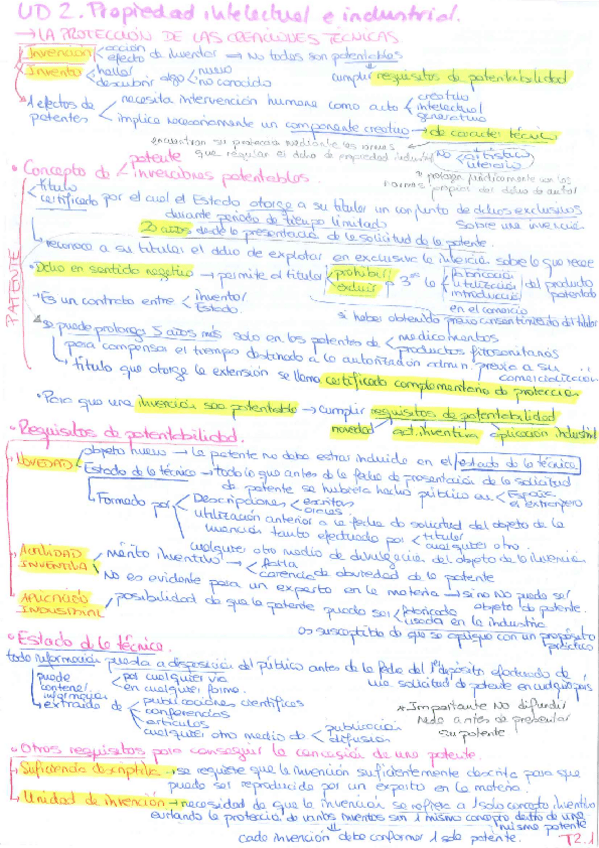 UD 2. Propiedad intelectual e industrial.
→ LA PROTECCIÓN DE LAS CREACIONES TÉCNICAS
Invención < acción efecto de inventar → No todas son patentables
Invento < hallar descubrir algo < nuevo no conocido
cumplir requisitos de patentabilidad
A efectos de patentes < necesita intervención humana como acto < creativo intelectual generativo
implica necesariamente un componente creativo → de carácter técnico
encuentran su protección mediante las normas que regulan el dcho de propiedad industrial
No < artístico literario
protegen jurídicamente con las normas propias del dcho de autor
• Concepto de < patente invenciones patentables.
PATENTE
título
certificado por el cual el Estado otorga a su titular un conjunto de dchos exclusivos
durante periodo de tiempo limitado sobre una invención.
20 años desde la presentación de la solicitud de la patente.
reconoce a su titular el dcho de explotar en exclusiva la invención sobre la que recae
• Dcho en sentido negativo → permite al titular < prohibir excluir a 3ºs la < fabricación utilización introducción del producto patentado
en el comercio
• Es un contrato entre < inventor Estado.
si haber obtenido previo consentimiento del titular
se puede prolongar 5 años más solo en las patentes de < medicamentos productos fitosanitarios
para compensar el tiempo destinado a la autorización admin. previa a su comercialización
título que otorga la extensión se llama certificado complementario de protección
• Para que una invención sea patentable → cumplir requisitos de patentabilidad
novedad act. inventiva aplicación industrial
• Requisitos de patentabilidad.
NOVEDAD < objeto nuevo → la patente no debe estar incluida en el estado de la técnica
Estado de la técnica → todo lo que antes de la fecha de presentación de la solicitud
de patente se hubiera hecho público en < España el extranjero
Formado por < Descripciones < escritas orales
utilización anterior a la fecha de solicitud del objeto de la
invención tanto efectuado por < titular cualquier otro
cualquier otro medio de divulgación del objeto de la invención
ACTIVIDAD INVENTIVA < mérito inventivo → < falta carencia de obviedad de la patente
No es evidente para un experto en la materia → si no No puede ser objeto de patente.
APLICACIÓN INDUSTRIAL > posibilidad de que la patente pueda ser < fabricada usada en la industria
es susceptible de que se aplique con un propósito práctico
• Estado de la técnica.
toda información puesta a disposición del público antes de la fecha del 1er depósito efectuado de
una solicitud de patente en cualquier país
puede contener información < por cualquier vía en cualquier forma.
extraído de < publicaciones científicas
conferencias
artículos
cualquier otro medio de < publicación difusión
* Importante No difundir
Nada antes de presentar
su patente
• Otros requisitos para conseguir la concesión de una patente.
Suficiencia descriptiva → se requiere que la invención suficientemente descrita para que
puede ser reproducida por un experto en la materia.
Unidad de invención → necesidad de que la invención se refiera a 1 solo concepto inventivo
evitando la protección de varios inventos sin 1 mismo concepto dentro de una misma patente
cada invención debe conformar 1 sola patente.
T2.1